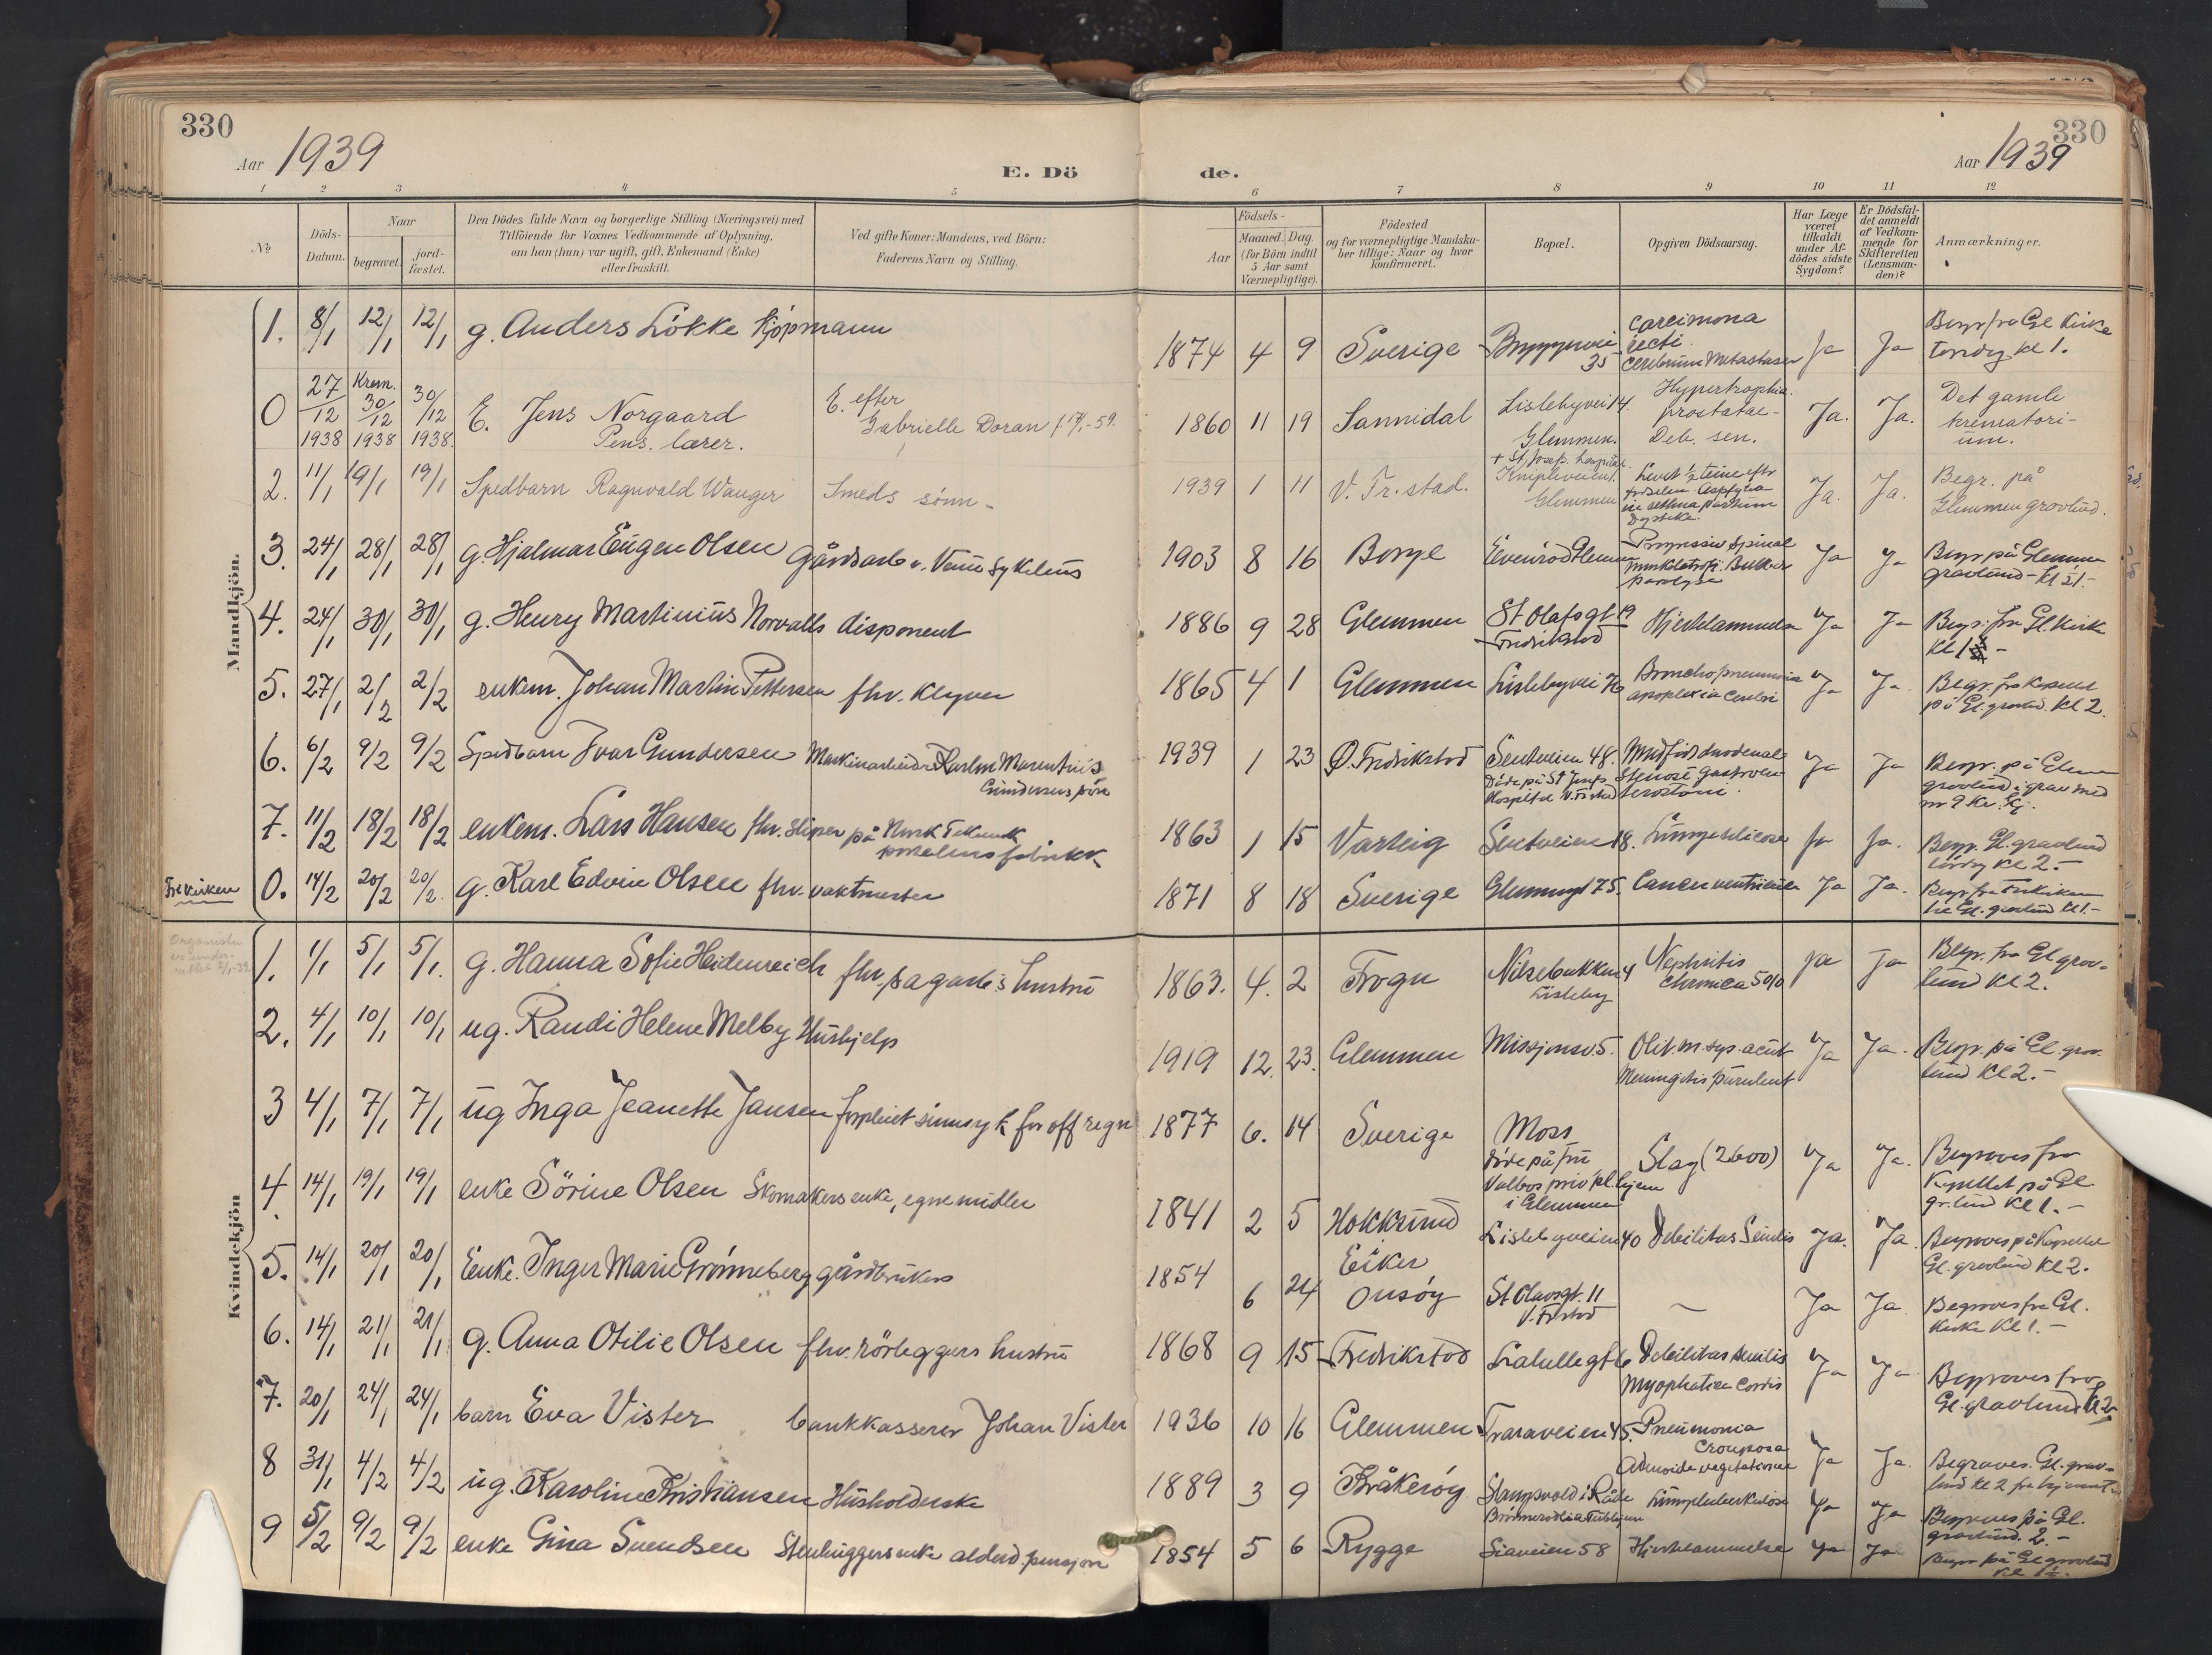 330
Aar 1939
E. Dö
de.
Aar 1939
330
1 2 3 4 5 6 7 8 9 10 11 12
№
Döds-
Datum.
Naar
begravet.
jord-
fæstet.
Den Dödes fulde Navn og borgerlige Stilling (Næringsvei) med
Tilföiende for Voxnes Vedkommende af Oplysning,
om han (hun) var ugift, gift, Enkemand (Enke)
eller fraskilt.
Ved gifte Koner: Mandens, ved Börn:
Faderens Navn og Stilling.
Födsels-
Aar
Maaned. Dag.
(for Börn indtil
5 Aar samt
Værnepligtige).
Födested
og for værnepligtige Mandska-
ber tillige: Naar og hvor
konfirmeret.
Bopæl.
Opgiven Dödsaarsag.
Har Læge
været
tilkaldt
under Af-
dödes sidste
Sygdom?
Er Dödsfal-
det anmeldt
af Vedkom-
mende for
Skifteretten
(Lensman-
den)?
Anmærkninger.
Mandkjön.
1. 8/1 12/1 12/1 g. Anders Lökke kjöpmann 1874 4 9 Sverige 35 Ja Ja Begr fra Gl Kirke
kl 1.
0 27/12 1938 Krem. 30/12 1938 30/12 1938. E. Jens Norgaard
Pens. lærer.
E. efter
Gabrielle Doran
1860 11 19 Sannidal Lislebyvei 14.
Glemmen.
Hypertrophia
prostatae-
Deb. sen.
Ja. Ja. Det gamle
krematori-
um.
2. 11/1 19/1 19/1 Spedbarn Ragnvald Wanger Smeds sønn - 1939 1 11 V. Fr.stad.
+ St. Josefs hospital.
Glemmen
Ja. Ja. Begr. på
Glemmen gravlund.
3. 24/1 28/1 28/1 g. Hjalmar Eugen Olsen Gårdsarb 1903 8 16 Borge Progressiv Spinal
paralyse
Ja Ja Begr på Glemmen
gravlund
4. 24/1 30/1 30/1 g. Henry Martinius Norvalls disponent 1886 9 28 Glemmen St Olafsgt 19
Fredrikstad
Hjertelammelse Ja Ja Begr. fra Gl. Kirke
Kl 1
5. 27/1 2/2 2/2 enkem. Johan Martin Pettersen fhv. 1865 4 1 Glemmen Lislebyvei Bronchopneumonia
apoplexia cerebri
Ja Ja Begr. fra Kapellet
på Gl. gravlund. Kl 2.
6. 6/2 9/2 9/2 Spedbarn Ivar Gundersen Maskinarbeider
Gundersens sön
1939 1 23 Ø. Fredrikstad Senteveien 48.
Döde på St Josefs
Hospital V. Fr.stad
Ja Ja Begr. på Glem
gravlund i grav med
7. 11/2 18/2 18/2 enkem. Lars Hansen fhv. sliper på Norsk Teknisk
porselensfabrikk
1863 1 15 Varteig Senteveien 18. Lungesilicose Ja Ja. Begr. Gl. gravlund
lördag Kl 2.-
Frikirken 0. 14/2 20/2 20/2. g. Karl Edvin Olsen fhv. vaktmester 1871 8 18 Sverige 75. Cancer ventriculi Ja Ja. Begr. fra Frikirken
til Gl. gravlund Kl 1.-
Kvindekjön
1. 1/1 5/1 5/1. g. Hanna Sofie Heidenreich fhv. sagarb.s hustru 1863. 4. 2 Frogn Nilsebakken 4
Lisleby
Nephritis
chronica
Ja Ja Begr. fra Gl grav-
lund Kl 2.
2. 4/1 10/1 10/1 ug. Randi Helene Melby Hushjelp 1919 12. 23. Glemmen Missjonsv 5. Otit. m. sup. acut
Meningitis purulent
Ja Ja. Begr. på Gl. grav
lund Kl 2.-
3 4/1 7/1 7/1 ug Inga Jeanette Jansen forpleiet sinnsyk for off regn 1877 6. 14 Sverige Moss
döde på fru
Valbos priv pl.hjem
i Glemmen
Slag (2600) Ja Ja. Begraves fra
Kapellet på Gl.
gr.lund Kl 1.-
4. 14/1 19/1 19/1 enke Sörine Olsen Skomakers enke, egne midler 1841 2 5 Hokksund
Eiker
Lislebyveien 40 Debilitas Senilis Ja. Ja. Begraves på Kapellet
Gl. gravlund Kl 2.
5. 14/1 20/1 20/1 Enke. Inger Marie Grønneberg gårdbrukers 1854 6 24 Onsöy St Olavsgt. 11
V. Fr.stad
— Ja Ja Begraves fra Gl.
Kirke Kl 1.-
6. 14/1 21/1 21/1 g. Anna Otilie Olsen fhv. rörleggers hustru 1868 9 15 Fredrikstad Debilitas senilis
cordis
Ja Ja Begraves fra
Gl. gravlund Kl 2
7. 20/1 24/1 24/1 barn Eva Vister bankkasserer Johan Vister 1936 10 16 Glemmen Traraveien 45. Pneumonia
Crouposa
Adenoide vegetationer
Ja Ja. Begraves. Gl. grav-
lund kl 2 fra
8 31/1 4/2 4/2 ug. Karoline Kristiansen Husholderske 1889 3 9 Kråkeröy i Råde
Lungetuberkulose Ja Ja Begraves på Gl.
gravlund. 2.-
9 5/2 9/2 9/2 enke Gina Svendsen Stenhuggers enke alderd. pensjon 1854 5 6 Rygge Siaveien 58 Hjertelammelse Ja Ja Begr på Gl gravlund